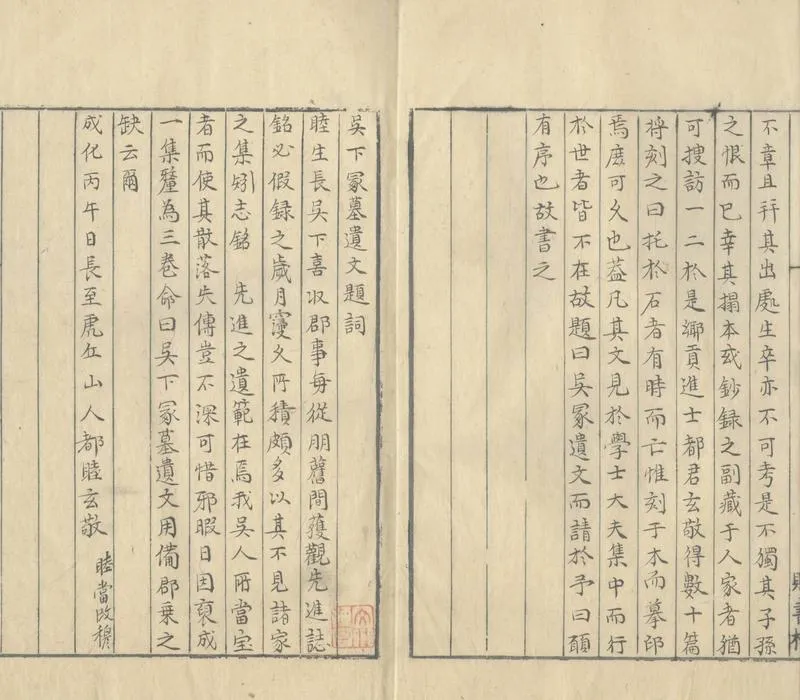 不章且并其出處生卒亦不可考是不獨其子孫
之恨而已幸其搨本或鈔録之副藏于人家者猶
可搜訪一二於是鄉貢進士都君玄敬得數十篇
将刻之曰托於石者有時而亡惟刻于木而摹印
焉庶可久也葢凡其文見於學士大夫集中而行
於世者皆不在故題曰吳冢遺文而請於予曰願
有序也故書之
吳下冢墓遺文題詞
睦生長吳下喜収郡事每從朋舊間獲觀先進誌
銘必假録之歲月寖久所積頗多以其不見諸家
之集矧志銘 先進之遺範在焉我吳人所當宝
者而使其散落失傳豈不深可惜邪暇日因裒成
一集釐為三卷命曰吳下冢墓遺文用備郡乗之
缺云爾
成化丙午日長至虎丘山人都睦玄敬
睦當改穆